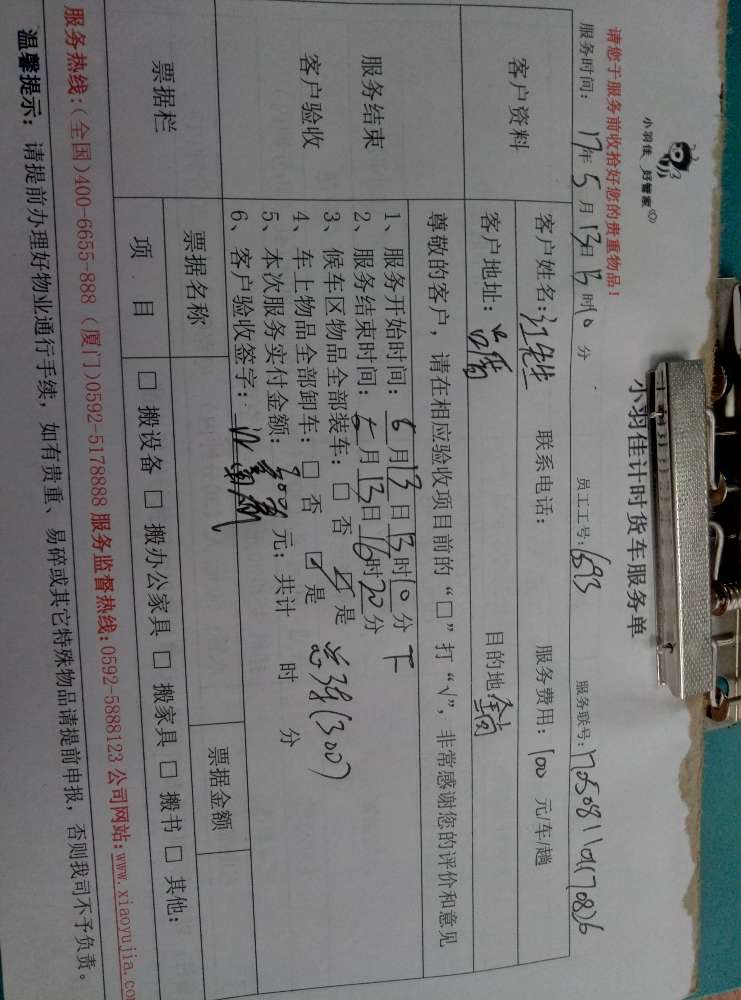 小羽佳 好管家
小羽佳计时货车服务单
请您于服务前收拾好您的贵重物品！
服务时间：17年5月13日13时10分 员工工号：1693 服务联号：
客户资料
客户姓名：江先生 联系电话： 服务费用：100元/车/趟
客户地址： 目的地
尊敬的客户，请在相应验收项目前的“□”打“√”，非常感谢您的评价和意见
服务结束
客户验收
1、服务开始时间：5月13日13时10分
2、服务结束时间：5月13日16时20分
3、候车区物品全部装车：□否 ☑是
4、车上物品全部卸车：□否 ☑是
5、本次服务实付金额：300元；共计 时 分
6、客户验收签字：
(300)
票据栏
票据名称 票据金额
项目 □搬设备 □搬办公家具 □搬家具 □搬书 □其他：
服务热线：(全国)400-6655-888 (厦门)0592-5178888 服务监督热线：0592-5888123 公司网站：www.xiaoyujia.co
温馨提示：请提前办理好物业通行手续，如有贵重、易碎或其它特殊物品请提前申报，否则我司不予负责。